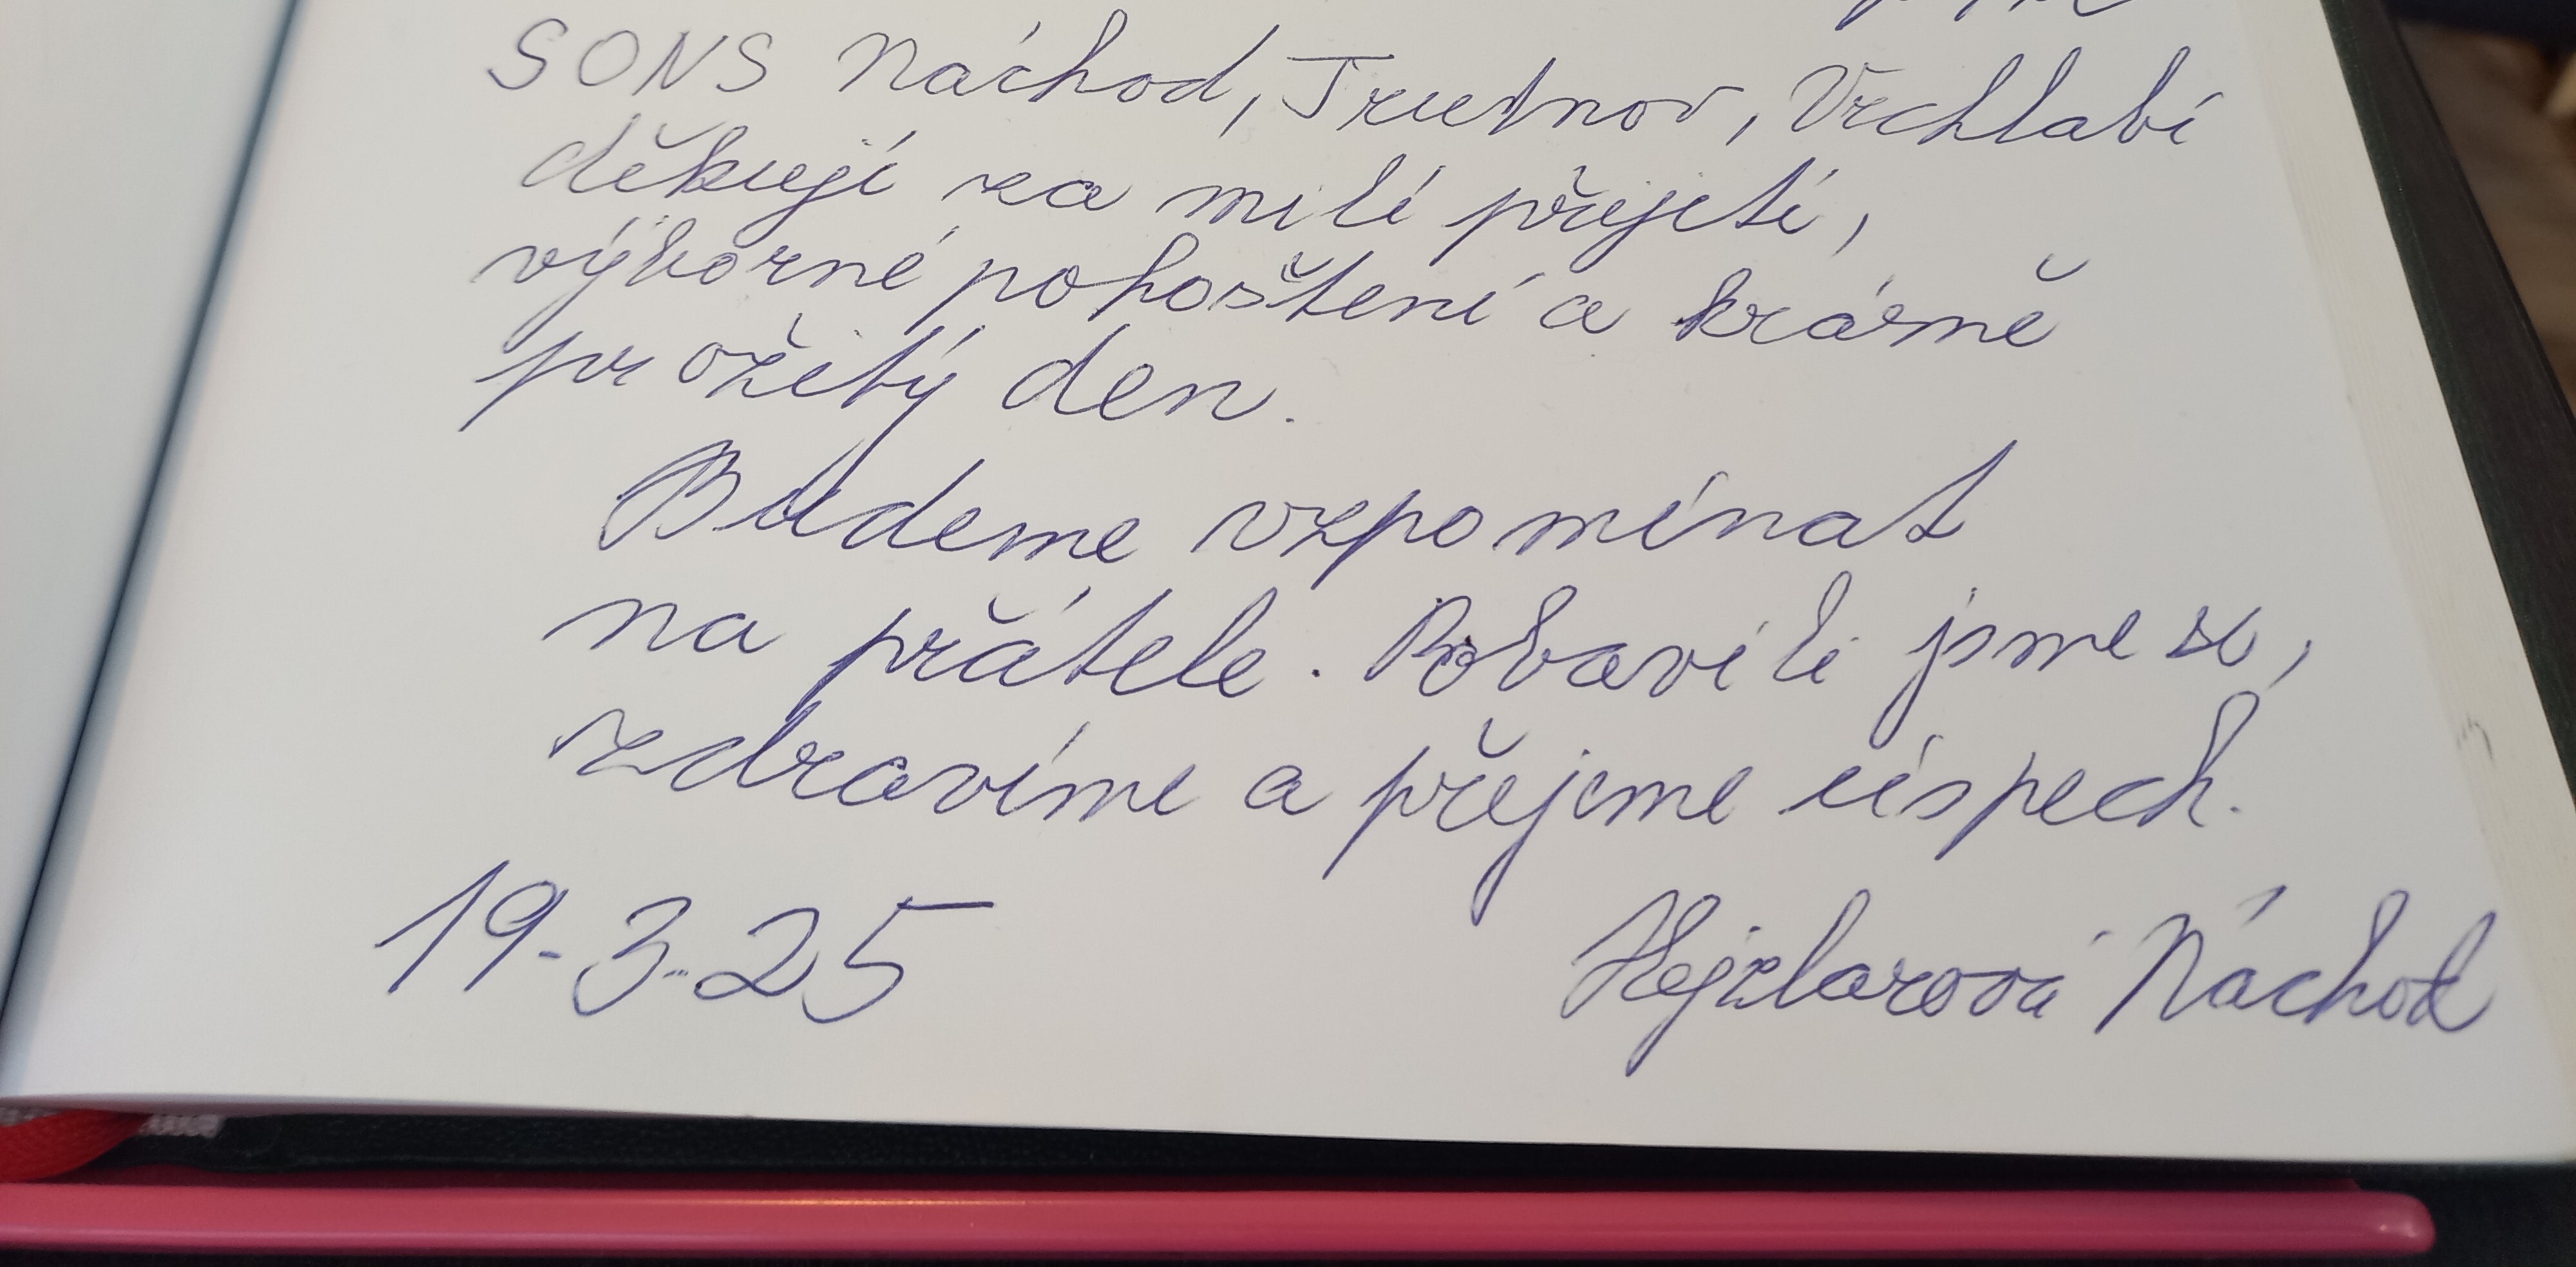 SONS Náchod, Trutnov, Vrchlabí
děkují za milí přijetí,
výborné pohoštění a krásně
prožitý den.
Budeme vzpomínat
na přátele. Pobavili jsme se,
zdravíme a přejeme úspech.
19.3.25 Hejzlarová Náchod